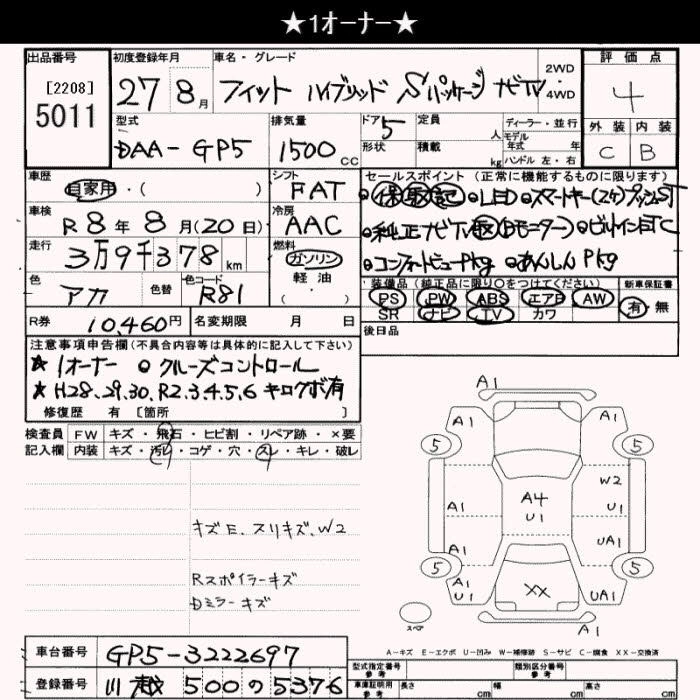 ★1オーナー★
出品番号
[2208]
5011
初度登録年月
27年8月
車名・グレード
フィット ハイブリッド Sパッケージ ナビTV
2WD
4WD
評価点
4
外装 内装
C B
型式
DAA-GP5
排気量
1500 CC
ドア 5
形状
定員 人
積載 kg
ディーラー・並行
モデル
年式 年
ハンドル 左・右
車歴
自家用・( )
シフト
FAT
車検
R8年8月(20日)
冷房
AAC
走行
3万9千378 km
燃料
ガソリン
軽油
( )
色
アカ
色替
色コード
R81
R券 10,460円
名変期限 月 日
セールスポイント(正常に機能するものに限ります)
保 取 記 LED スマートキー(2ケ)プッシュST
純正ナビTV 取 (Dモニター) ビルインETC
コンフォートビューPkg あんしんPkg
装備品(純正品に限り○をつけてください)
PS PW ABS エアB AW
SR ナビ TV カワ
新車保証書
有・無
後日品
注意事項申告欄(不具合内容等は具体的に記入して下さい)
★1オーナー クルーズコントロール
★H28.29.30.R2.3.4.5.6 キロクボ有
修復歴 有 [箇所 ]
検査員 FW キズ・飛石・ヒビ割・リペア跡・×要
記入欄 内装 キズ・汚レ・コゲ・穴・スレ・キレ・破レ
キズE、スリキズ、W2
Rスポイラーキズ
Dミラーキズ
A1
A1 A1
5 5
W2
A1 A4 U1
U1
A1 UA1
5 5
A1
U1 XX UA1
スペア
A1
A-キズ E-エクボ U-凹み W-補修跡 S-サビ C-腐食 XX-交換済
車台番号 GP5-3222697
登録番号 川越 500 の 5376
型式指定番号
参考
類別区分番号
参考
車庫証明用
参考
長さ cm 幅 cm 高さ cm